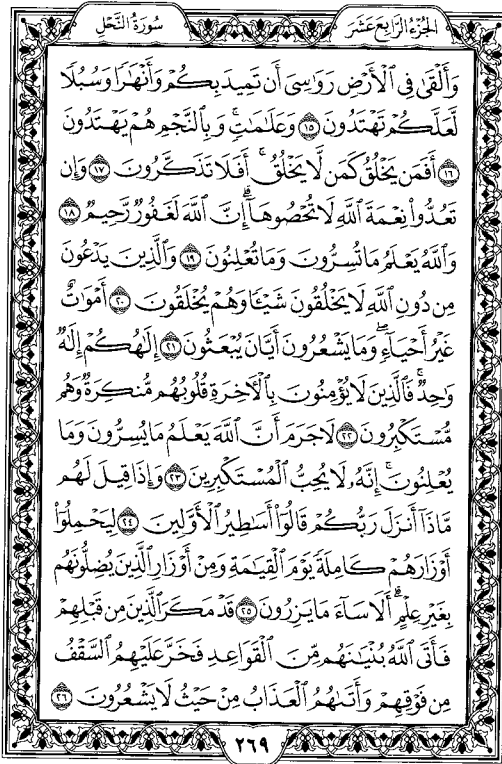 الجزء الرابع عشر
سورة النحل
وَأَلْقَىٰ فِي ٱلْأَرْضِ رَوَٰسِىَ أَن تَمِيدَ بِكُمْ وَأَنْهَٰرًا وَسُبُلًا
لَّعَلَّكُمْ تَهْتَدُونَ ١٥ وَعَلَٰمَٰتٍ ۚ وَبِٱلنَّجْمِ هُمْ يَهْتَدُونَ
١٦ أَفَمَن يَخْلُقُ كَمَن لَّا يَخْلُقُ ۗ أَفَلَا تَذَكَّرُونَ ١٧ وَإِن
تَعُدُّوا۟ نِعْمَةَ ٱللَّهِ لَا تُحْصُوهَآ ۗ إِنَّ ٱللَّهَ لَغَفُورٌ رَّحِيمٌ ١٨
وَٱللَّهُ يَعْلَمُ مَا تُسِرُّونَ وَمَا تُعْلِنُونَ ١٩ وَٱلَّذِينَ يَدْعُونَ
مِن دُونِ ٱللَّهِ لَا يَخْلُقُونَ شَيْـًٔا وَهُمْ يُخْلَقُونَ ٢٠ أَمْوَٰتٌ
غَيْرُ أَحْيَآءٍ ۖ وَمَا يَشْعُرُونَ أَيَّانَ يُبْعَثُونَ ٢١ إِلَٰهُكُمْ إِلَٰهٌ
وَٰحِدٌ ۚ فَٱلَّذِينَ لَا يُؤْمِنُونَ بِٱلْءَاخِرَةِ قُلُوبُهُم مُّنكِرَةٌ وَهُم
مُّسْتَكْبِرُونَ ٢٢ لَا جَرَمَ أَنَّ ٱللَّهَ يَعْلَمُ مَا يُسِرُّونَ وَمَا
يُعْلِنُونَ ۚ إِنَّهُۥ لَا يُحِبُّ ٱلْمُسْتَكْبِرِينَ ٢٣ وَإِذَا قِيلَ لَهُم
مَّاذَآ أَنزَلَ رَبُّكُمْ قَالُوٓا۟ أَسَٰطِيرُ ٱلْأَوَّلِينَ ٢٤ لِيَحْمِلُوٓا۟
أَوْزَارَهُمْ كَامِلَةً يَوْمَ ٱلْقِيَٰمَةِ وَمِنْ أَوْزَارِ ٱلَّذِينَ يُضِلُّونَهُم
بِغَيْرِ عِلْمٍ ۗ أَلَا سَآءَ مَا يَزِرُونَ ٢٥ قَدْ مَكَرَ ٱلَّذِينَ مِن قَبْلِهِمْ
فَأَتَى ٱللَّهُ بُنْيَٰنَهُم مِّنَ ٱلْقَوَاعِدِ فَخَرَّ عَلَيْهِمُ ٱلسَّقْفُ
مِن فَوْقِهِمْ وَأَتَىٰهُمُ ٱلْعَذَابُ مِنْ حَيْثُ لَا يَشْعُرُونَ ٢٦
٢٦٩